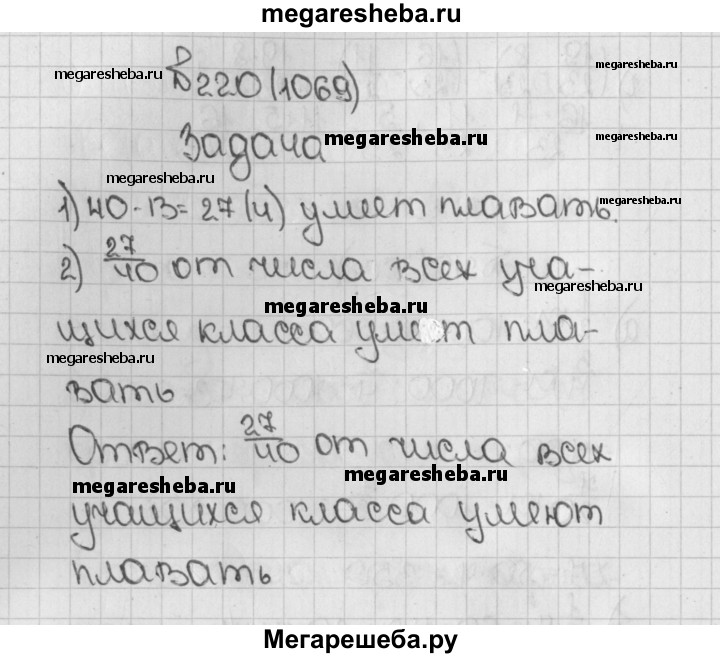 megaresheba.ru
megaresheba.ru
megaresheba.ru
В 220 (1069)
megaresheba.ru
Задача
megaresheba.ru
megaresheba.ru
1) 40-13=27 (ч) умеет плавать.
megaresheba.ru
2) 27/40 от числа всех уча-
megaresheba.ru
megaresheba.ru
щихся класса умеет пла-
megaresheba.ru
вать
Ответ: 27/40 от числа всех
megaresheba.ru
megaresheba.ru
учащихся класса умеют
плавать
Мегарешеба.ру